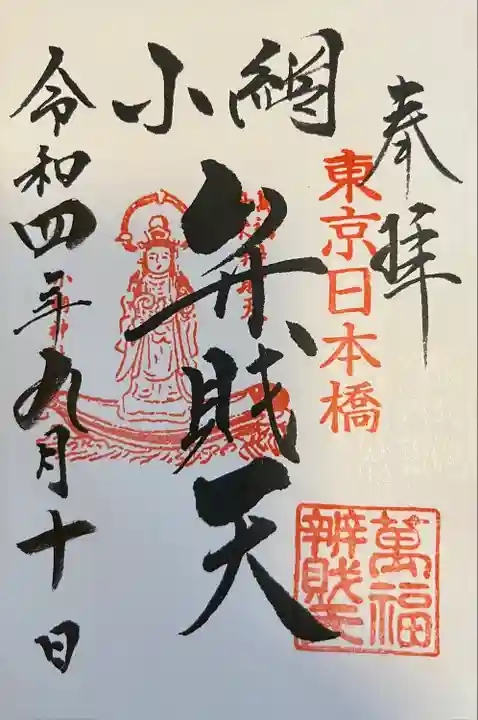 奉拝
東京日本橋
小網
弁財天
萬福
辨財天
令和四年九月十日